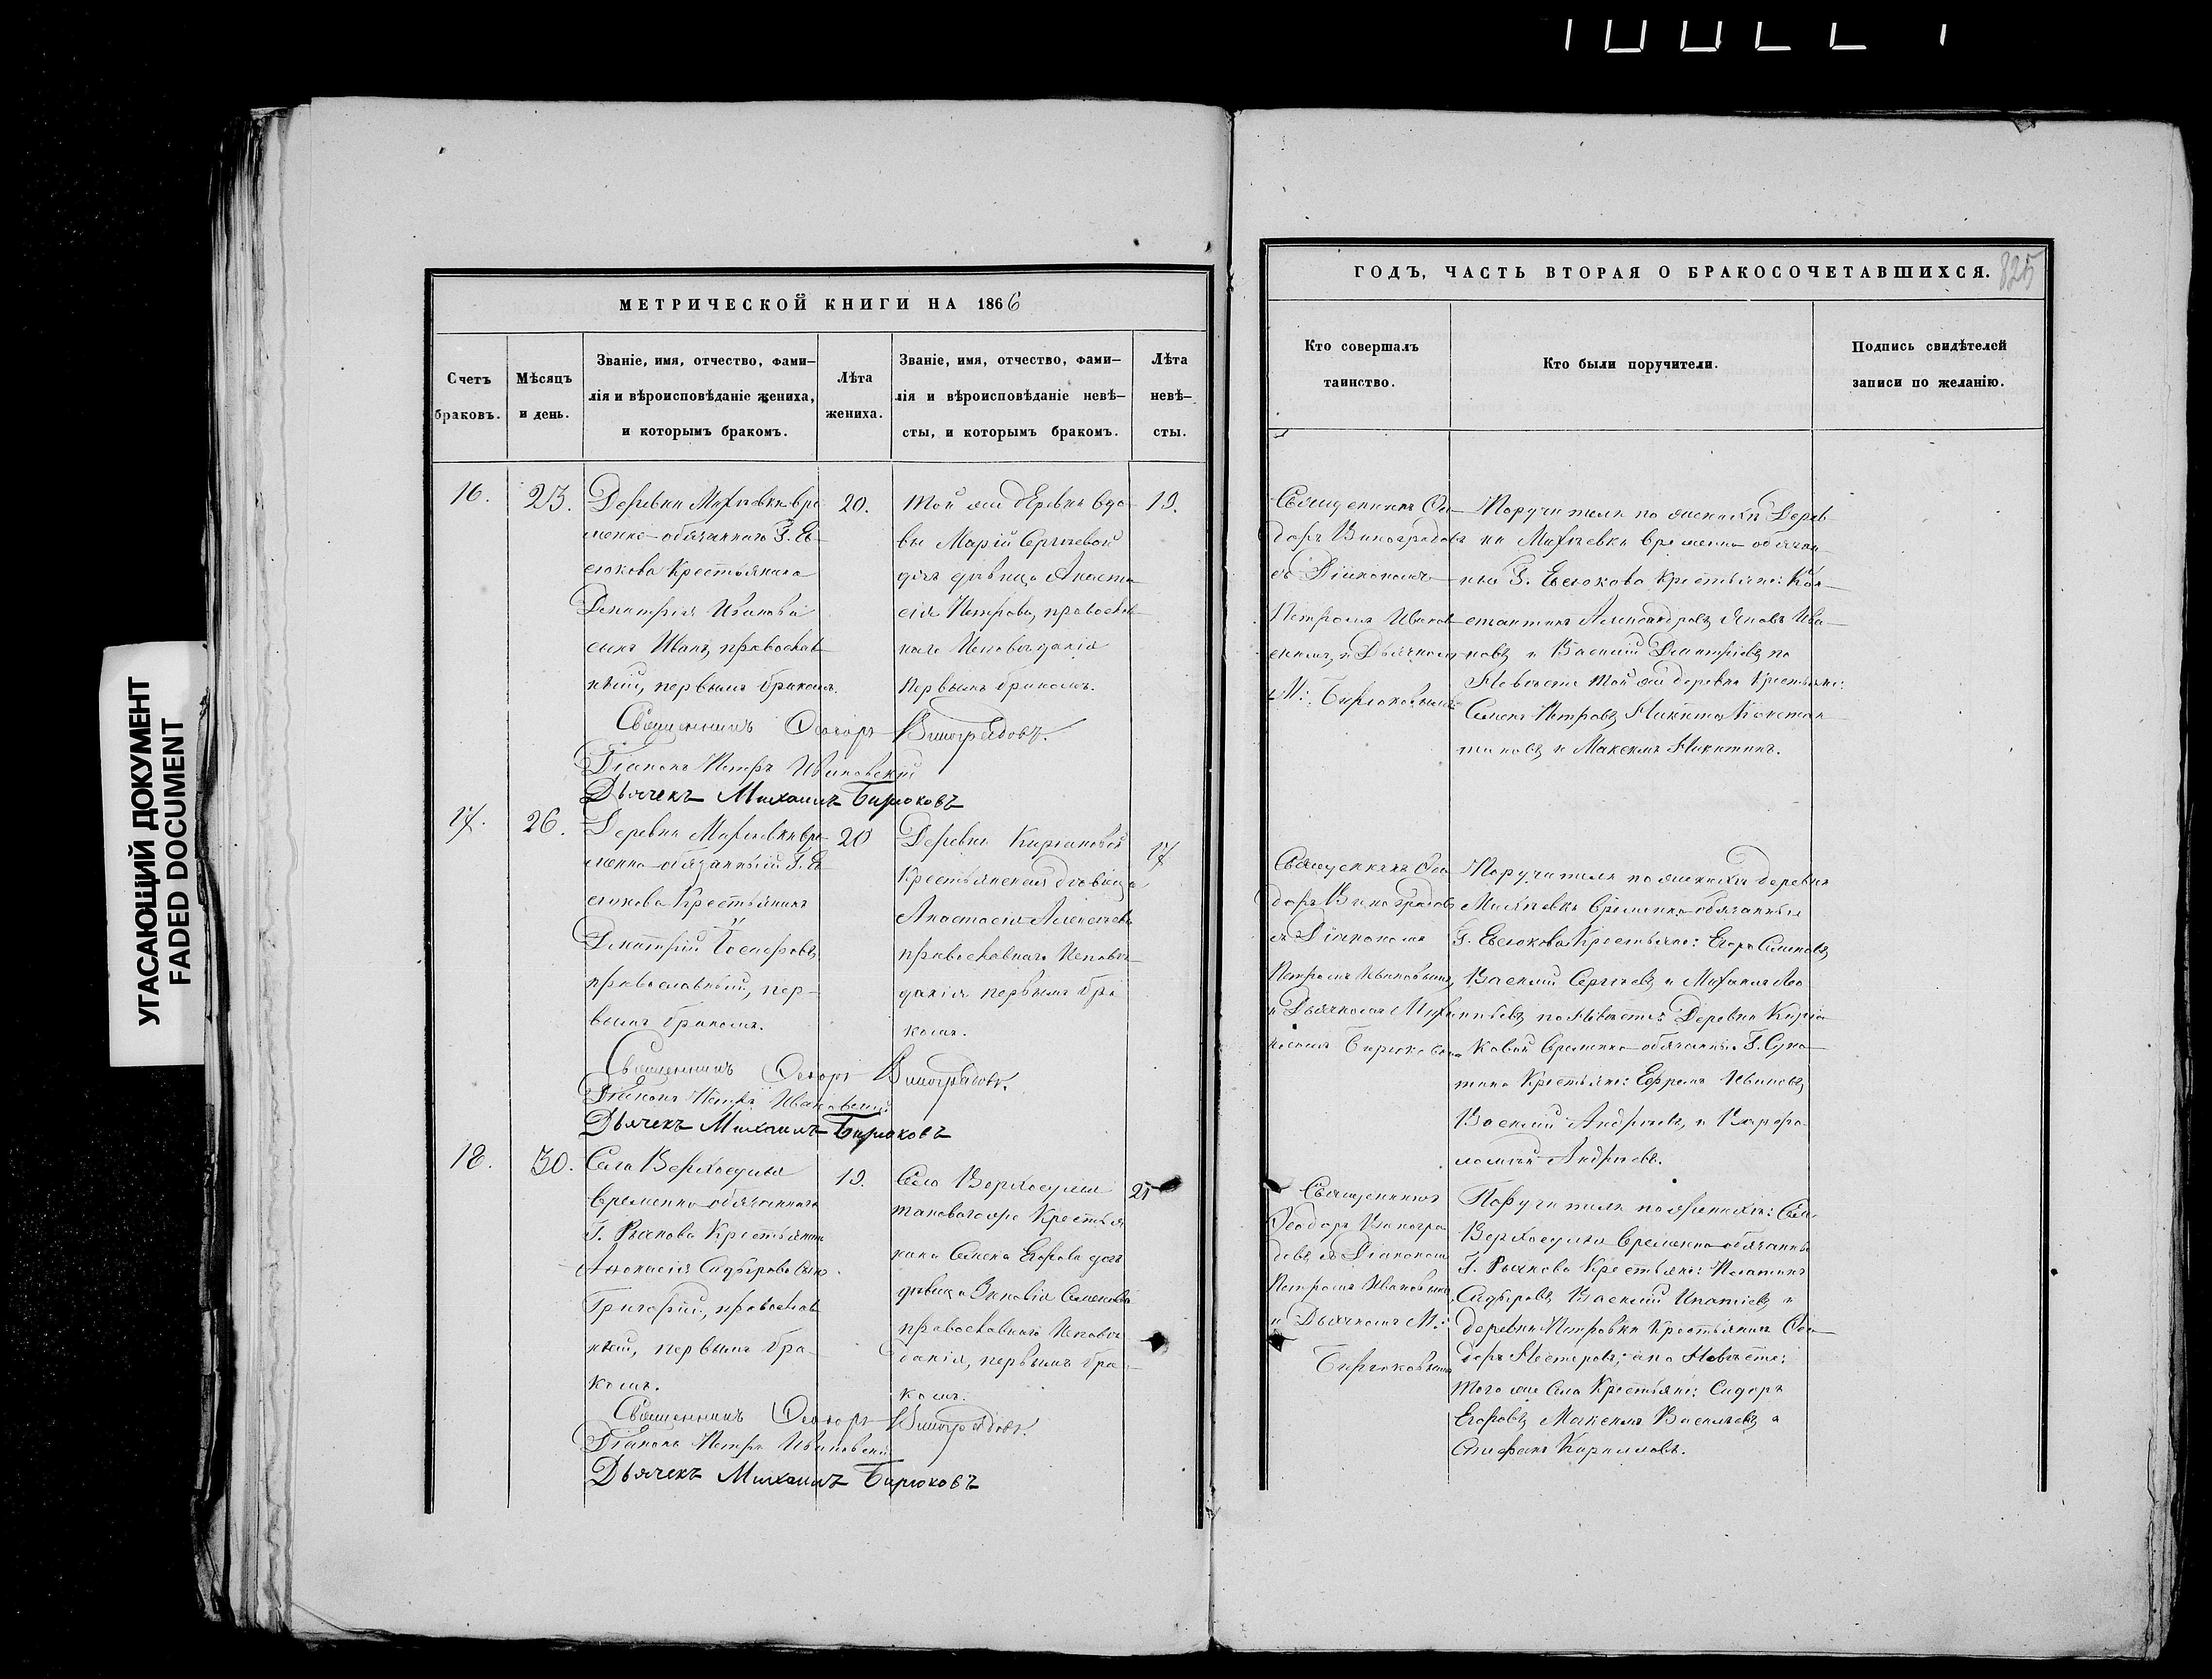 УГАСАЮЩИЙ ДОКУМЕНТ
FADED DOCUMENT
МЕТРИЧЕСКОЙ КНИГИ НА 1866
Счетъ браковъ.
Мѣсяцъ и день.
Званіе, имя, отчество, фами-
лія и вѣроисповѣданіе жениха,
и которымъ бракомъ.
Лѣта
жениха.
Званіе, имя, отчество, фами-
лія и вѣроисповѣданіе невѣ-
сты, и которымъ бракомъ.
Лѣта
невѣ-
сты.
16.
23.
Деревни Михѣевки вре
менно-обязаннаго Г. Ев-
сюкова Крестьянина
Димитрія Иванова
сынъ Иванъ, православ
ный, первымъ бракомъ.
20.
Той же деревни вдо-
вы Маріи Сергѣевой
дочь дѣвица Анаста
сія Петрова, православ
наго Исповѣданія
первымъ бракомъ.
19.
Священникъ Ѳеодоръ Виноградовъ.
Діаконъ Петръ Ивановскій
Дьячекъ Михаилъ Бирюковъ
17.
26.
Деревни Михѣевки вре
менно-обязанный Г. Ев
сюкова Крестьянинъ
Димитрій Іосифовъ,
православный, пер-
вымъ бракомъ.
20
Деревни
Крестьянская дѣвица
Анастасія Алексѣева
православнаго Исповѣ-
данія первымъ бра
комъ.
17
Священникъ Ѳеодоръ Виноградовъ.
Діаконъ Петръ Ивановскій
Дьячекъ Михаилъ Бирюковъ
18.
30.
Села Верхосулья
временно обязаннаго
Г. Рычкова Крестьянина
Аѳонасія Сидорова сынъ
Григорій, православ
ный, первымъ бра-
комъ.
19.
Села Верхосулья
таковагоже Крестья
нина Семена Егорова дочь
дѣвица Зиновія Семенова
православнаго Исповѣ
данія, первымъ бра-
комъ.
21
Священникъ Ѳеодоръ Виноградовъ.
Діаконъ Петръ Ивановскій
Дьячекъ Михаилъ Бирюковъ
ГОДЪ, ЧАСТЬ ВТОРАЯ О БРАКОСОЧЕТАВШИХСЯ.
825
Кто совершалъ
таинство.
Кто были поручители.
Подпись свидѣтелей
записи по желанію.
Священникъ Ѳео
доръ Виноградовъ
съ Діакономъ
Петромъ Иванов
скимъ, и Дьячкомъ
М: Бирюковымъ
Поручители по женихѣ Дерев
ни Михѣевки временно обязан
ные Г. Евсюкова Крестьяне: Кон-
стантинъ Александровъ, Яковъ Ива-
новъ, и Василій Димитріевъ, по
Невѣстѣ Той же деревни Крестьяне:
Семенъ Петровъ, Никита Констан
тиновъ, и Максимъ Никитинъ.
Священникъ Ѳео
доръ Виноградовъ
съ Діакономъ
Петромъ Ивановскимъ,
и Дьячкомъ Миха
иломъ Бирюковымъ
Поручители по женихѣ деревни
Михѣевки временно-обязанные
Г. Евсюкова Крестьяне: Егоръ Семеновъ,
Василій Сергѣевъ, и Михаилъ
по Невѣстѣ Деревни
временно-обязанные Г.
Крестьяне: Ефремъ Ивановъ,
Василій Андреевъ, и Варѳо
ломей Андреевъ.
Священникъ
Ѳеодоръ Виногра
довъ, съ Діакономъ
Петромъ Ивановскимъ,
и Дьячкомъ М:
Бирюковымъ
Поручители по женихѣ: Села
Верхосулья временно-обязанные
Г. Рычкова Крестьяне:
Сидоровъ, Василій Игнатіевъ, и
деревни Петровки Крестьянинъ Ѳео-
доръ Нестеровъ; а по Невѣстѣ:
Того же Села Крестьяне: Сидоръ
Егоровъ, Максимъ Васильевъ, и
Стефанъ Кирилловъ.